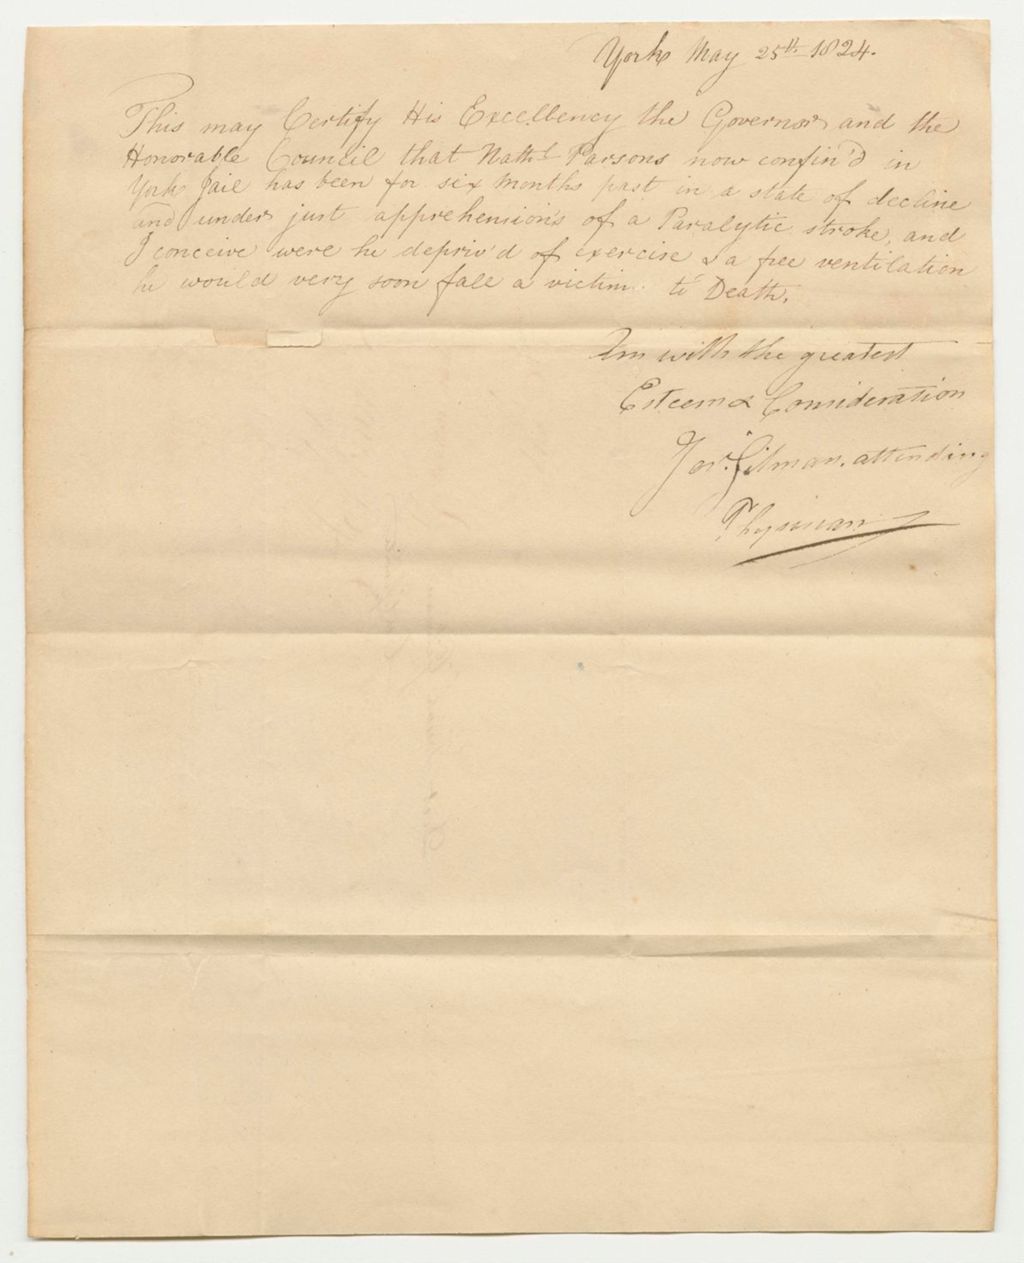 York May 25th 1824.
This may Certify His Excellency the Governor and the
Honorable Council that Nathl Parsons now confin'd in
York Jail has been for six Months past in a state of decline
and under just apprehensions of a Paralytic stroke, and
I conceive were he depriv'd of exercise & a free ventilation
he would very soon fale a victim to Death.
Am with the greatest
Esteem & Consideration
Gilman. attending
Physician